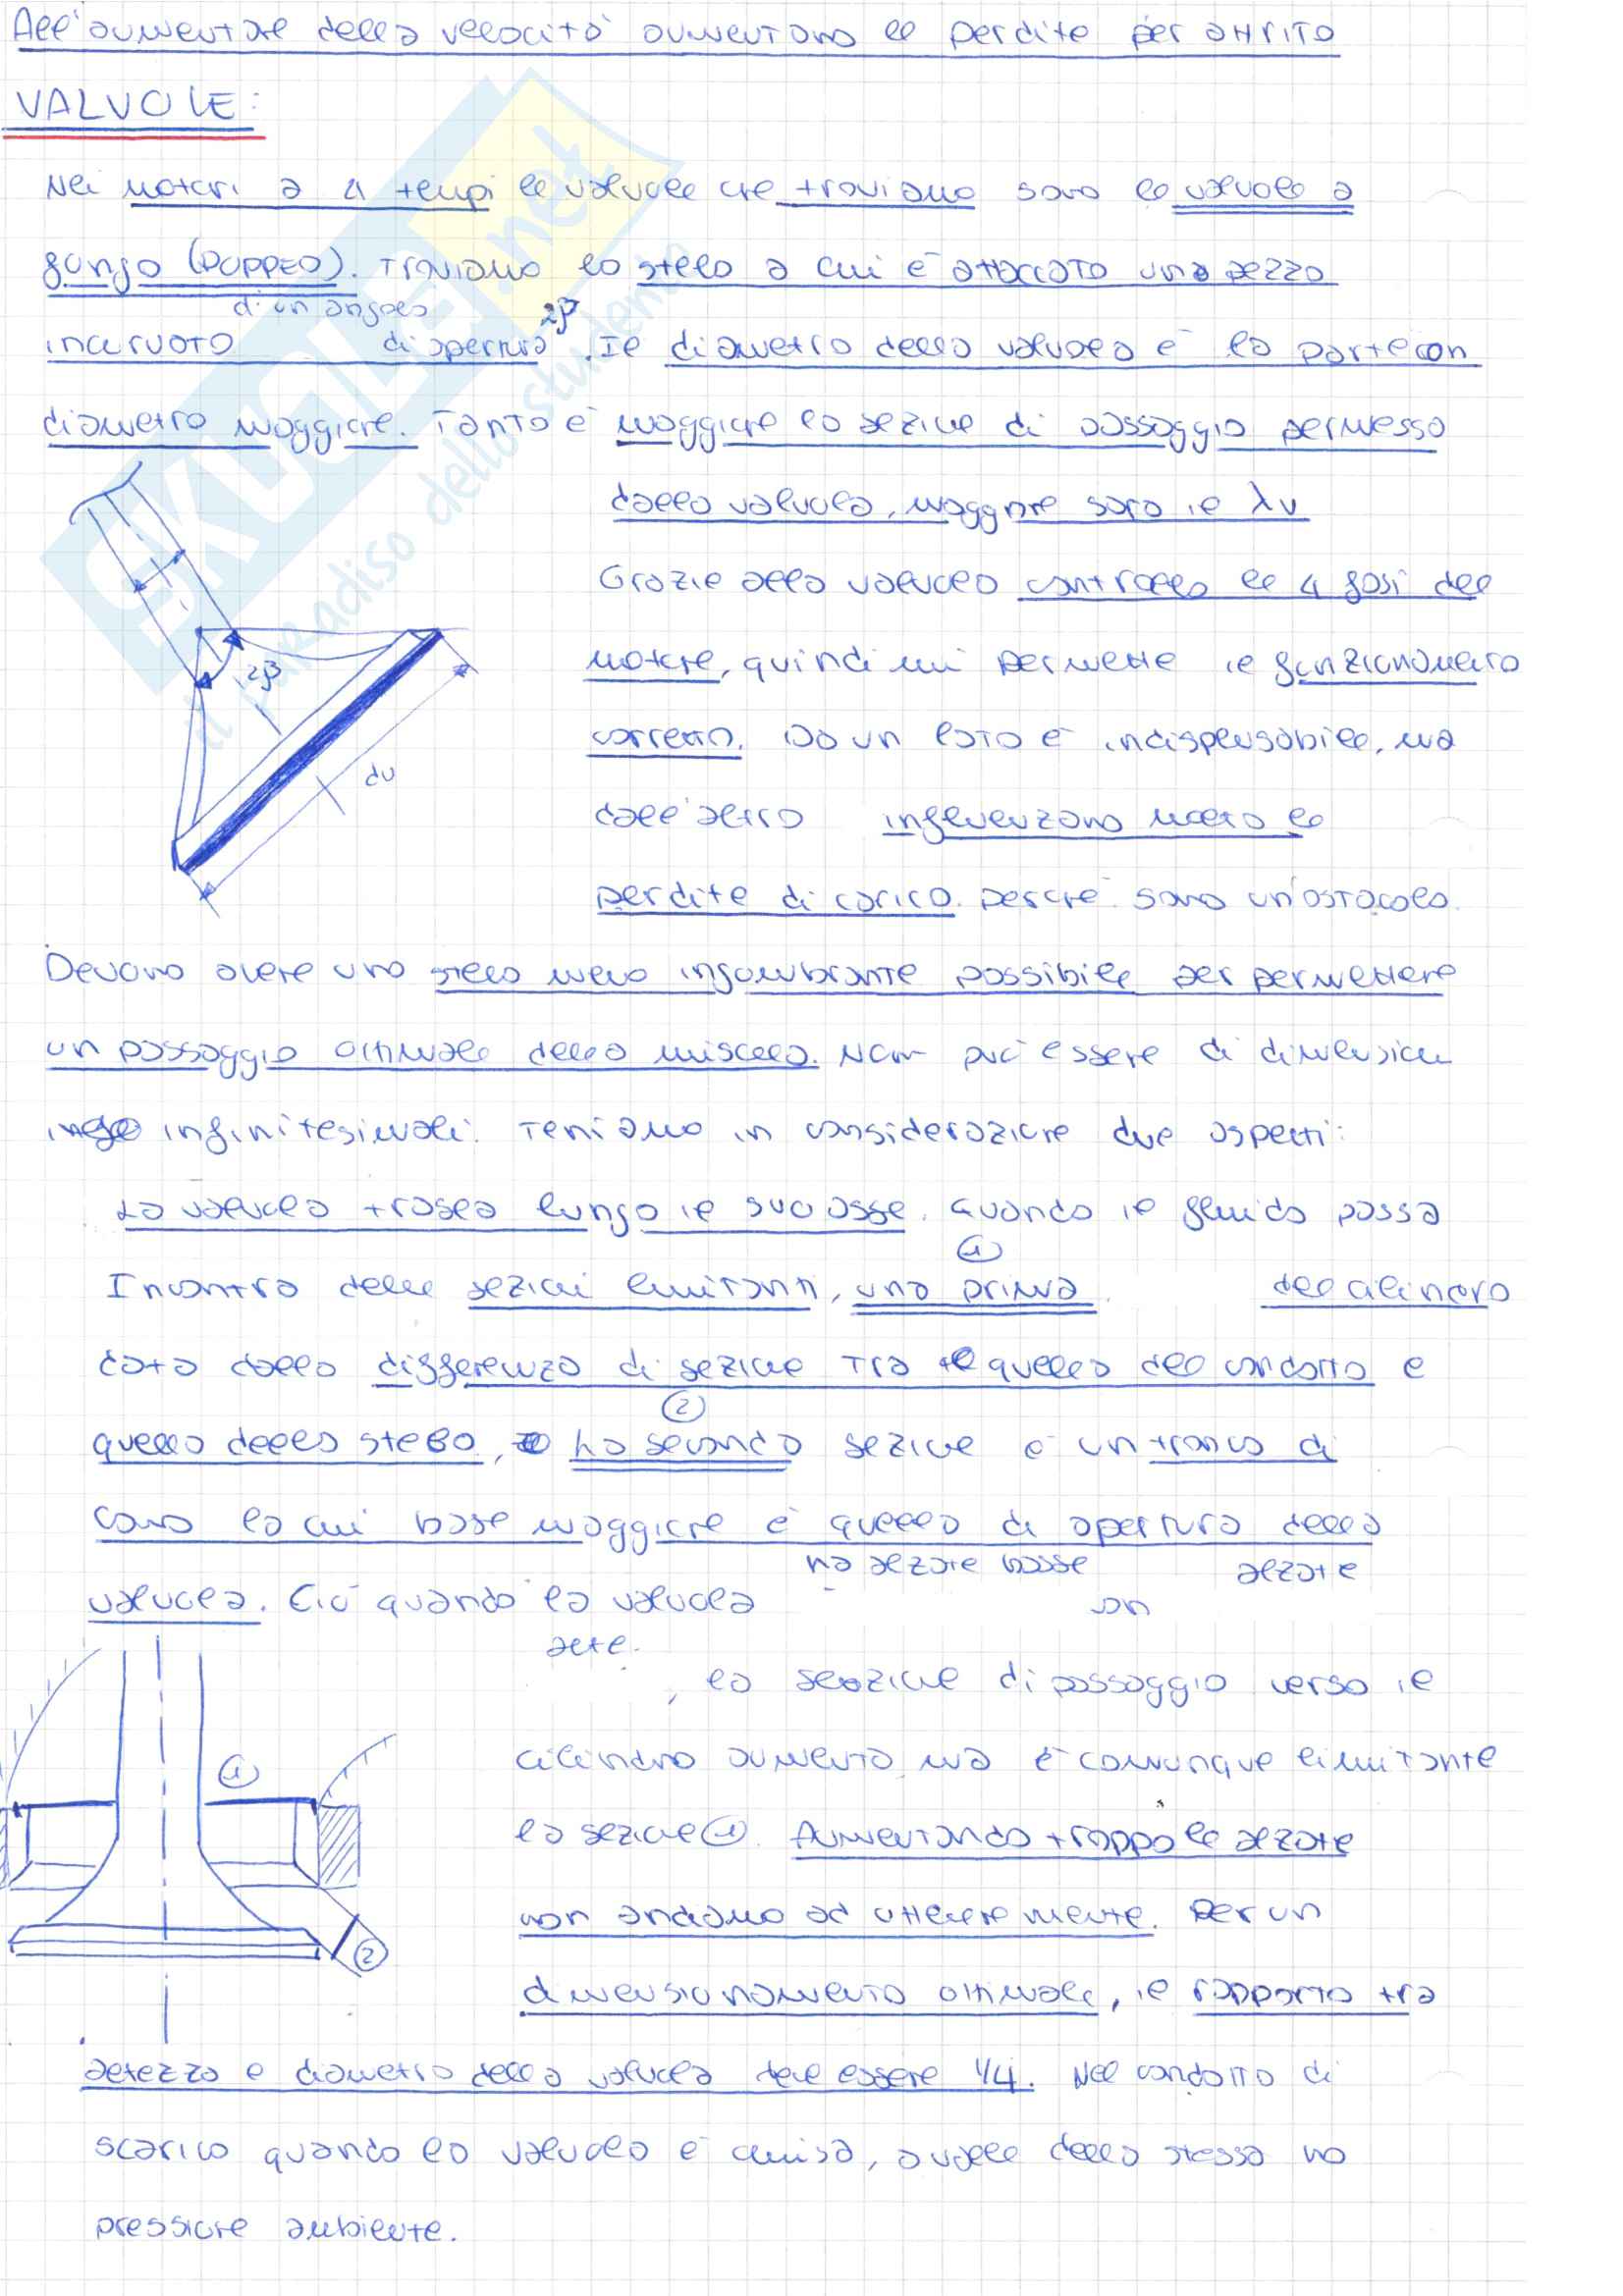 All'aumentare della velocità aumentano le perdite per attrito
VALVOLE:
Nei motori a 4 tempi le valvole che troviamo sono le valvole a
fungo (POPPED). Troviamo lo stelo a cui è attaccato una pezzo
d'un angolo 2β
incurvato di apertura. Il diametro della valvola è la parte con
diametro maggiore. Tanto è maggiore la sezione di passaggio permesso
dalla valvola, maggiore sarà il λv
Grazie alla valvola controllo le 4 fasi del
motore, quindi mi permette il funzionamento
corretto. Da un lato è indispensabile, ma
dall'altro influenzano molto le
perdite di carico perché sono un'ostacolo.
2β
dv
Devono avere uno stelo meno ingombrante possibile per permettere
un passaggio ottimale della miscela. Non può essere di dimensioni
infinitesimali. Teniamo in considerazione due aspetti:
La valvola trasla lungo il suo asse. Quando il fluido passa
1
Incontra delle sezioni limitanti, una prima del cilindro
data dalla differenza di sezione tra quella del condotto e
2
quella dello stelo, La seconda sezione è un tronco di
cono la cui base maggiore è quella di apertura della
ha alzate basse alzate
valvola. Ciò quando la valvola con
alte.
, la sezione di passaggio verso il
cilindro aumenta ma è comunque limitante
la sezione 1. Aumentando troppo le alzate
non andiamo ad ottenere niente. Per un
dimensionamento ottimale, il rapporto tra
1
2
altezza e diametro della valvola deve essere 1/4. Nel condotto di
scarico quando la valvola è chiusa, a valle della stessa ho
pressione ambiente.
SKUOLA.net
il paradiso dello studente